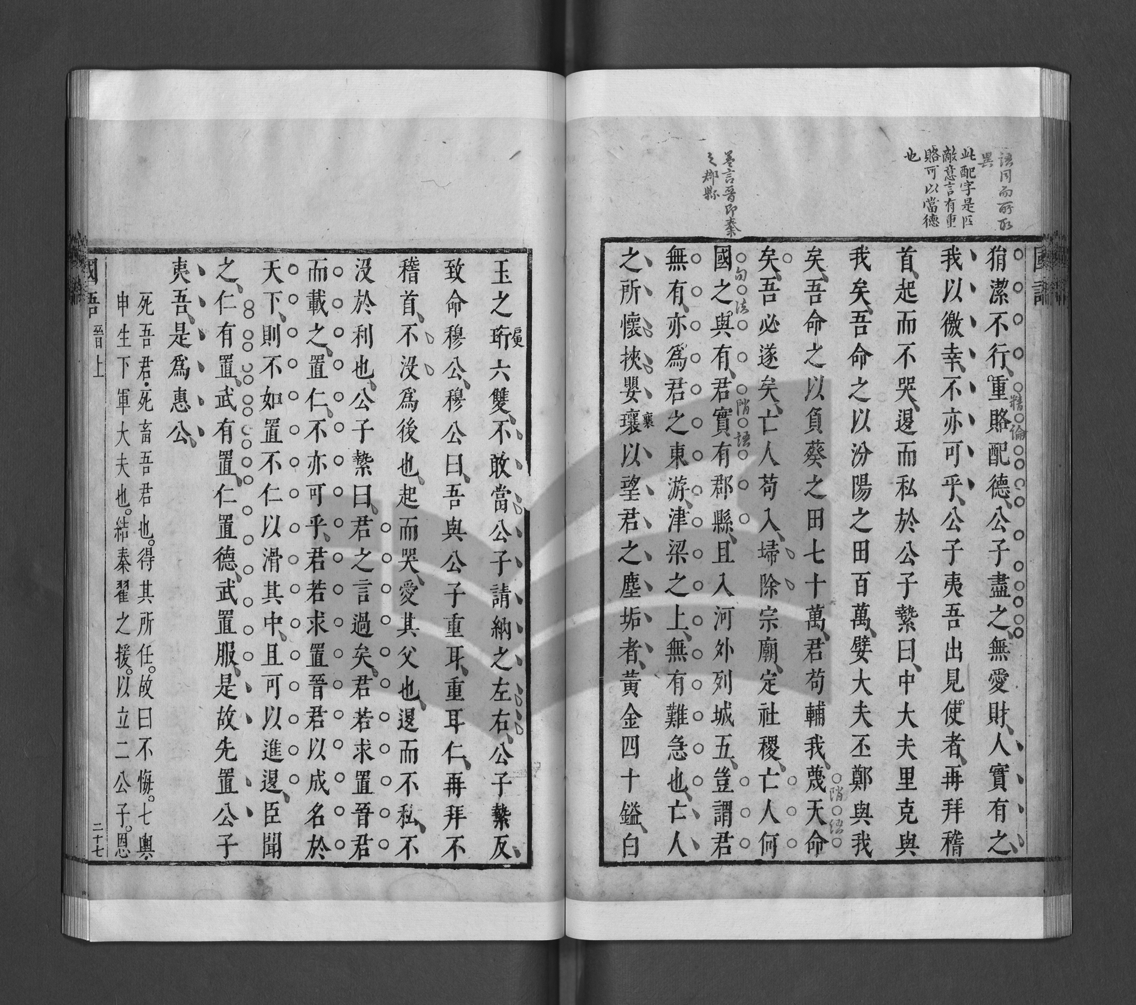 語同而所取
異
此配字是匹
敵意言有重
賂可以當德
也
蓋言晉即秦
之郡縣
國語
狷潔不行、重賂配德、公子盡之、無愛財、人實有之、
我以徼幸、不亦可乎、公子夷吾出見使者、再拜稽
首、起而不哭、退而私於公子縶曰、中大夫里克與
我矣、吾命之以汾陽之田百萬、嬖大夫丕鄭與我
矣、吾命之以負葵之田七十萬、君苟輔我、蔑天命
矣、吾必遂矣、亡人苟入、埽除宗廟、定社稷、亡人何
國之與有、君實有郡縣、且入河外列城五、豈謂君
無有、亦爲君之東游、津梁之上、無有難急也、亡人
之所懷挾嬰瓖以望君之塵垢者、黃金四十鎰、白
玉之珩六雙、不敢當公子請納之左右、公子縶反
致命穆公、穆公曰、吾與公子重耳、重耳仁、再拜不
稽首、不沒爲後也、起而哭、愛其父也、退而不私、不
沒於利也、公子縶曰、君之言過矣、君若求置晉君
而載之、置仁、不亦可乎、君若求置晉君以成名於
天下、則不如置不仁以滑其中、且可以進退、臣聞
之、仁有置、武有置、仁置德、武置服、是故先置公子
夷吾、是爲惠公、
死吾君、死畜吾君也。得其所任。故曰不悔。七輿
申生下軍大夫也。結秦翟之援。以立二公子。恩
國語 晉上 二十七